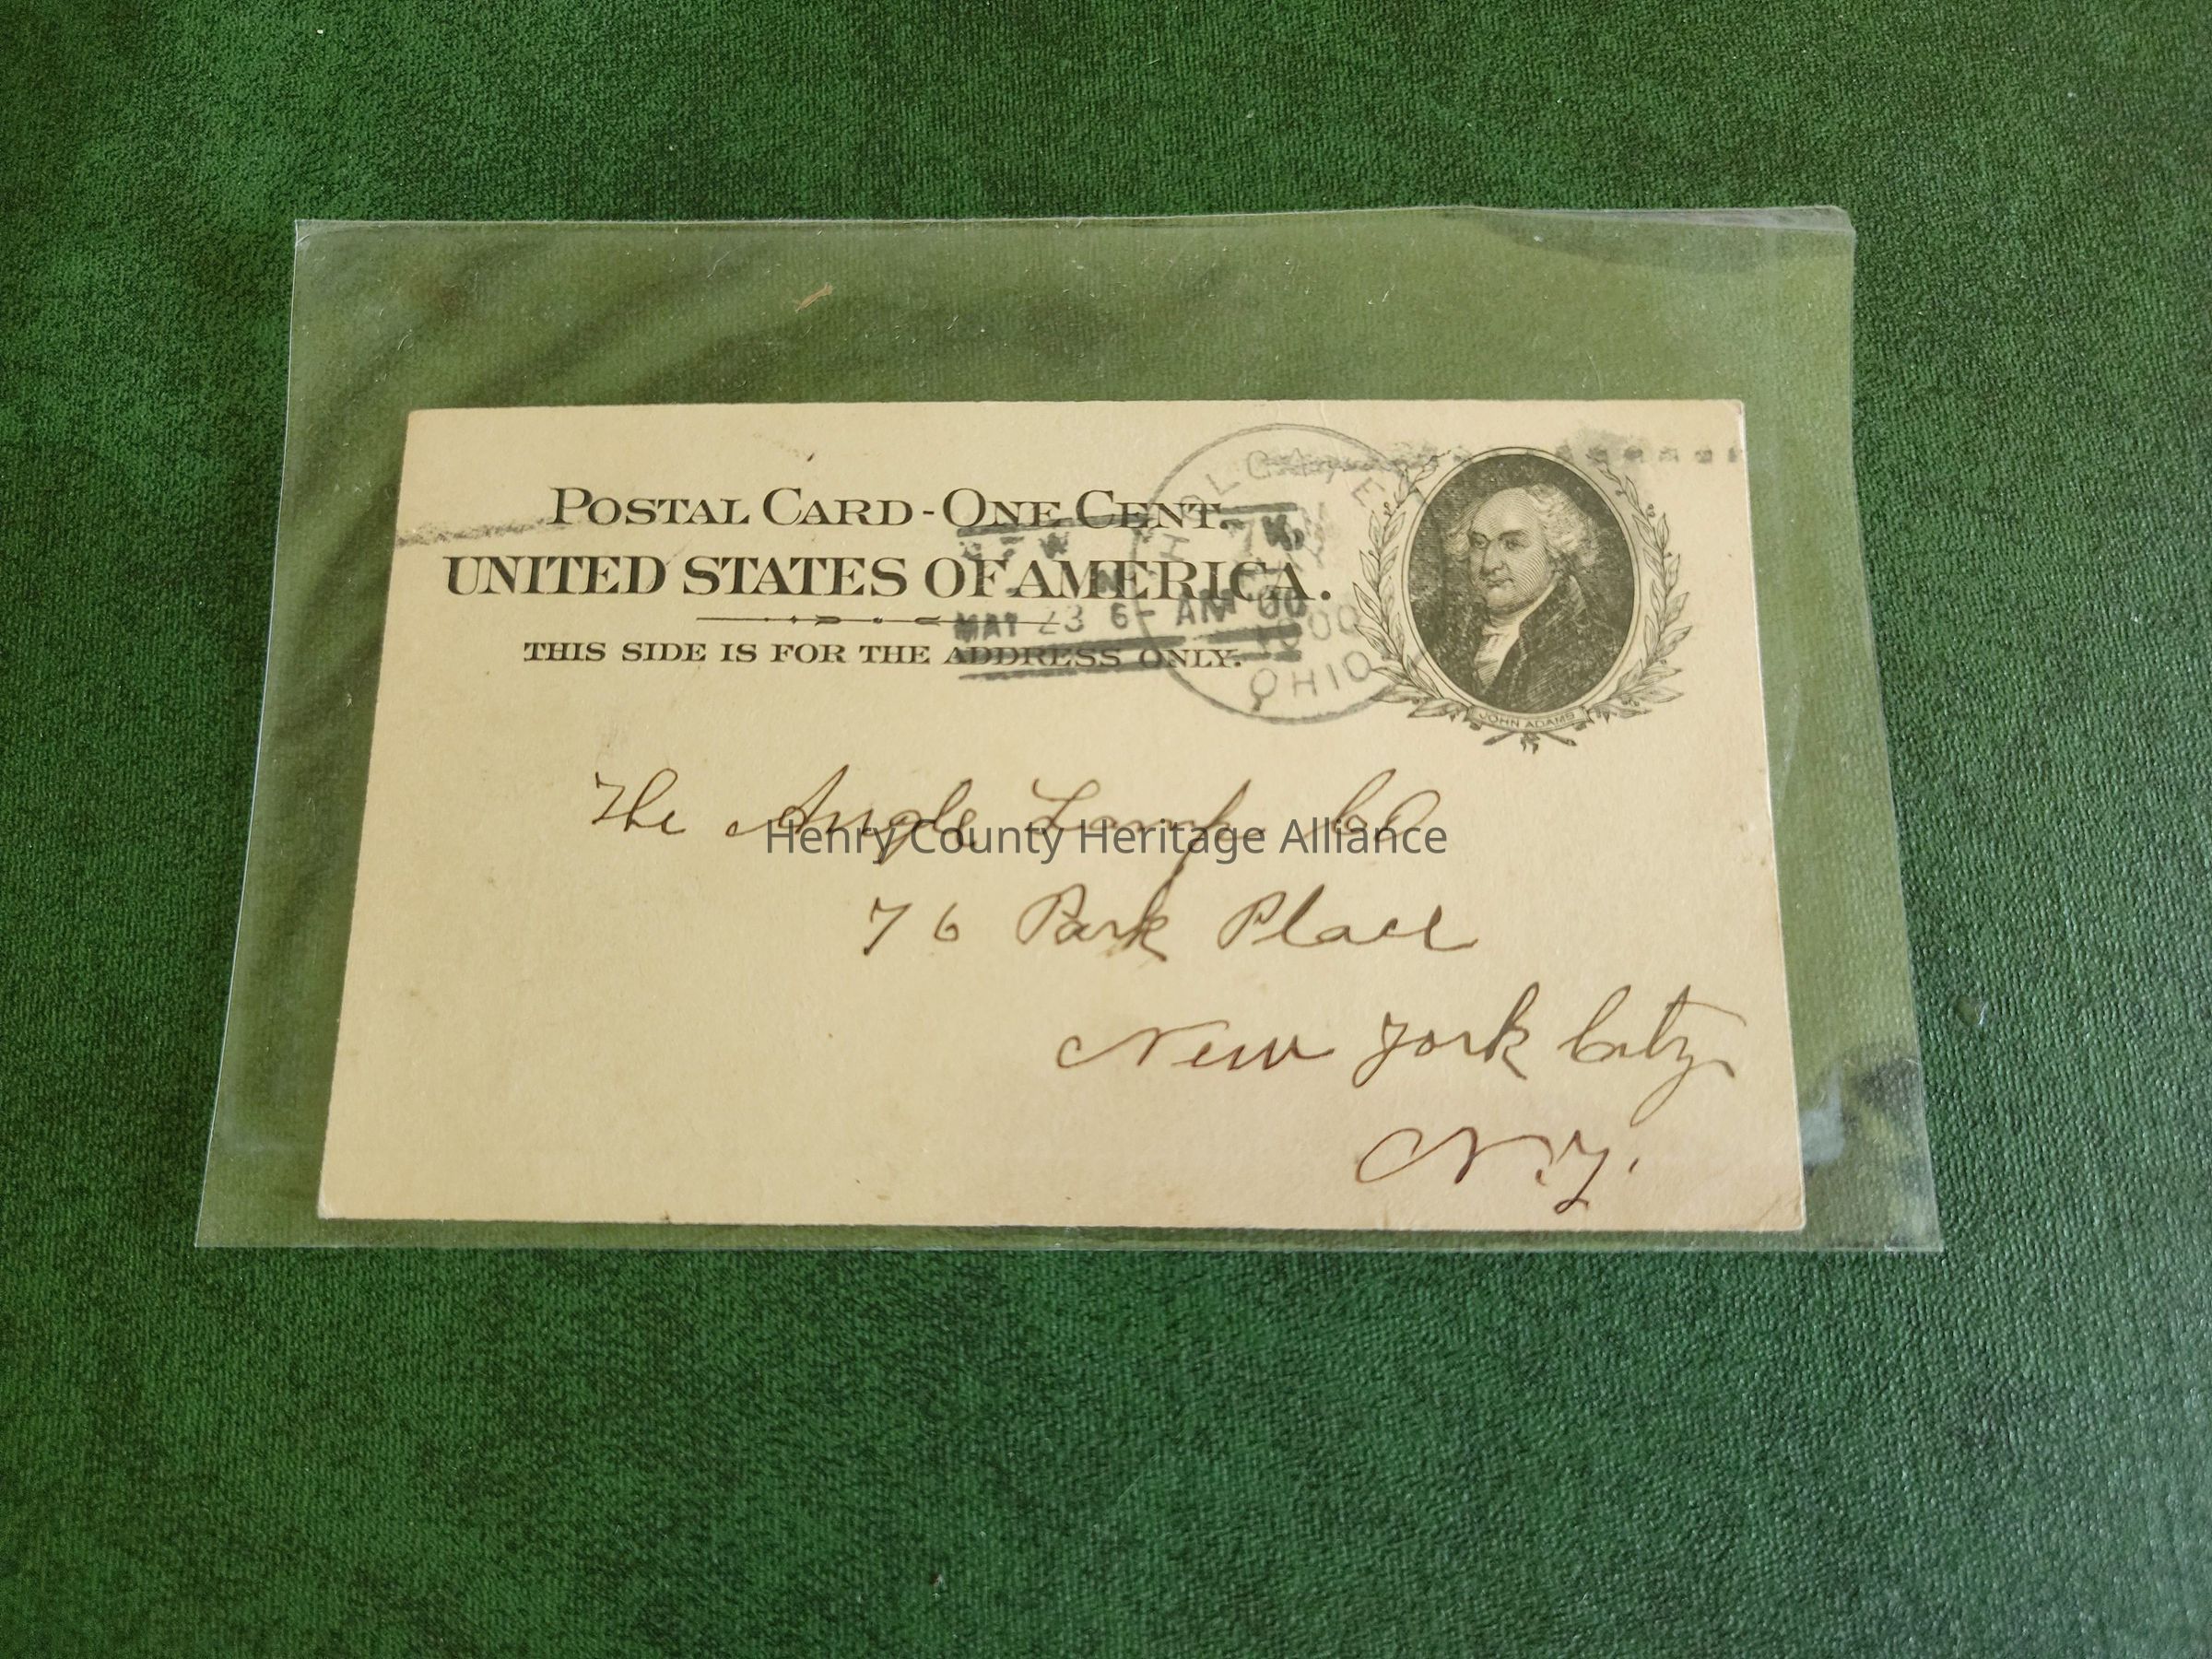 POSTAL CARD - ONE CENT.
UNITED STATES OF AMERICA.
THIS SIDE IS FOR THE ADDRESS ONLY.
HOLGATE
OHIO
MAY 23 6- AM 00
JOHN ADAMS
The Angle Lamp Co
Henry County Heritage Alliance
76 Park Place
New York City
N.Y.